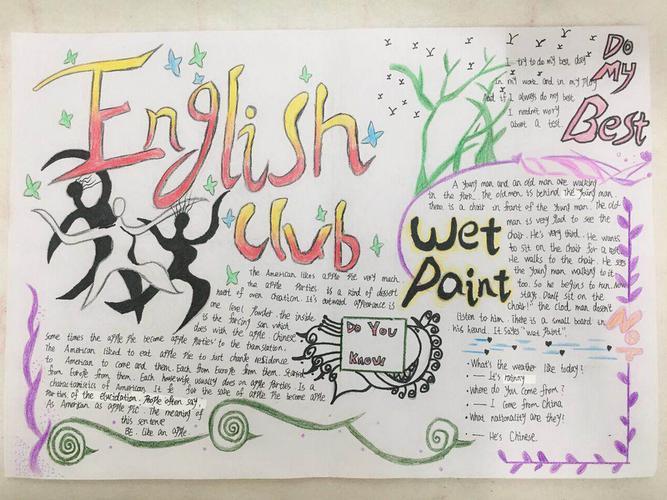 English
club
Do
My
Best
I try to do my best day
In my work and in my play
And if I always do my best
I needn't worry
about a test.
Wet
Paint
A young man and an old man are walking
in the park. The old man is behind the young man.
There is a chair in front of the young man. The old
man is very glad to see the
chair. He's very tired. He wants
to sit on the chair for a
He walks to the chair. He sees
the young man walking to it
too. So he begins to run.
stay. Don't sit on the
chair!" the man doesn't
listen to him. There is a small board in
his heard. It says "wet paint".
NOT
• What's the weather like today?
— It's rainny
• Where do you come from?
— I come from China
• What nationality are they?
— He's Chinese.
Do You
Know
The American likes apple pie very much.
the apple Parties is a kind of dessert
heart of oven creation. It's outward appearance is
one level powder. the inside
is the farcing san which
does with the apple Chinese
some times the apple pie become apple parties to the translation.
The American liked to eat apple pie to just change residence
to American to come and them. Each from Europe from them. Started
from Europe from them. Each housewife usually does an apple parties. Is a
characteristics of American. It is for the sake of apple pie become apple
Parties of the elucidation. People often say
As American as apple pie. The meaning of
this sentence
BE. like an apple.